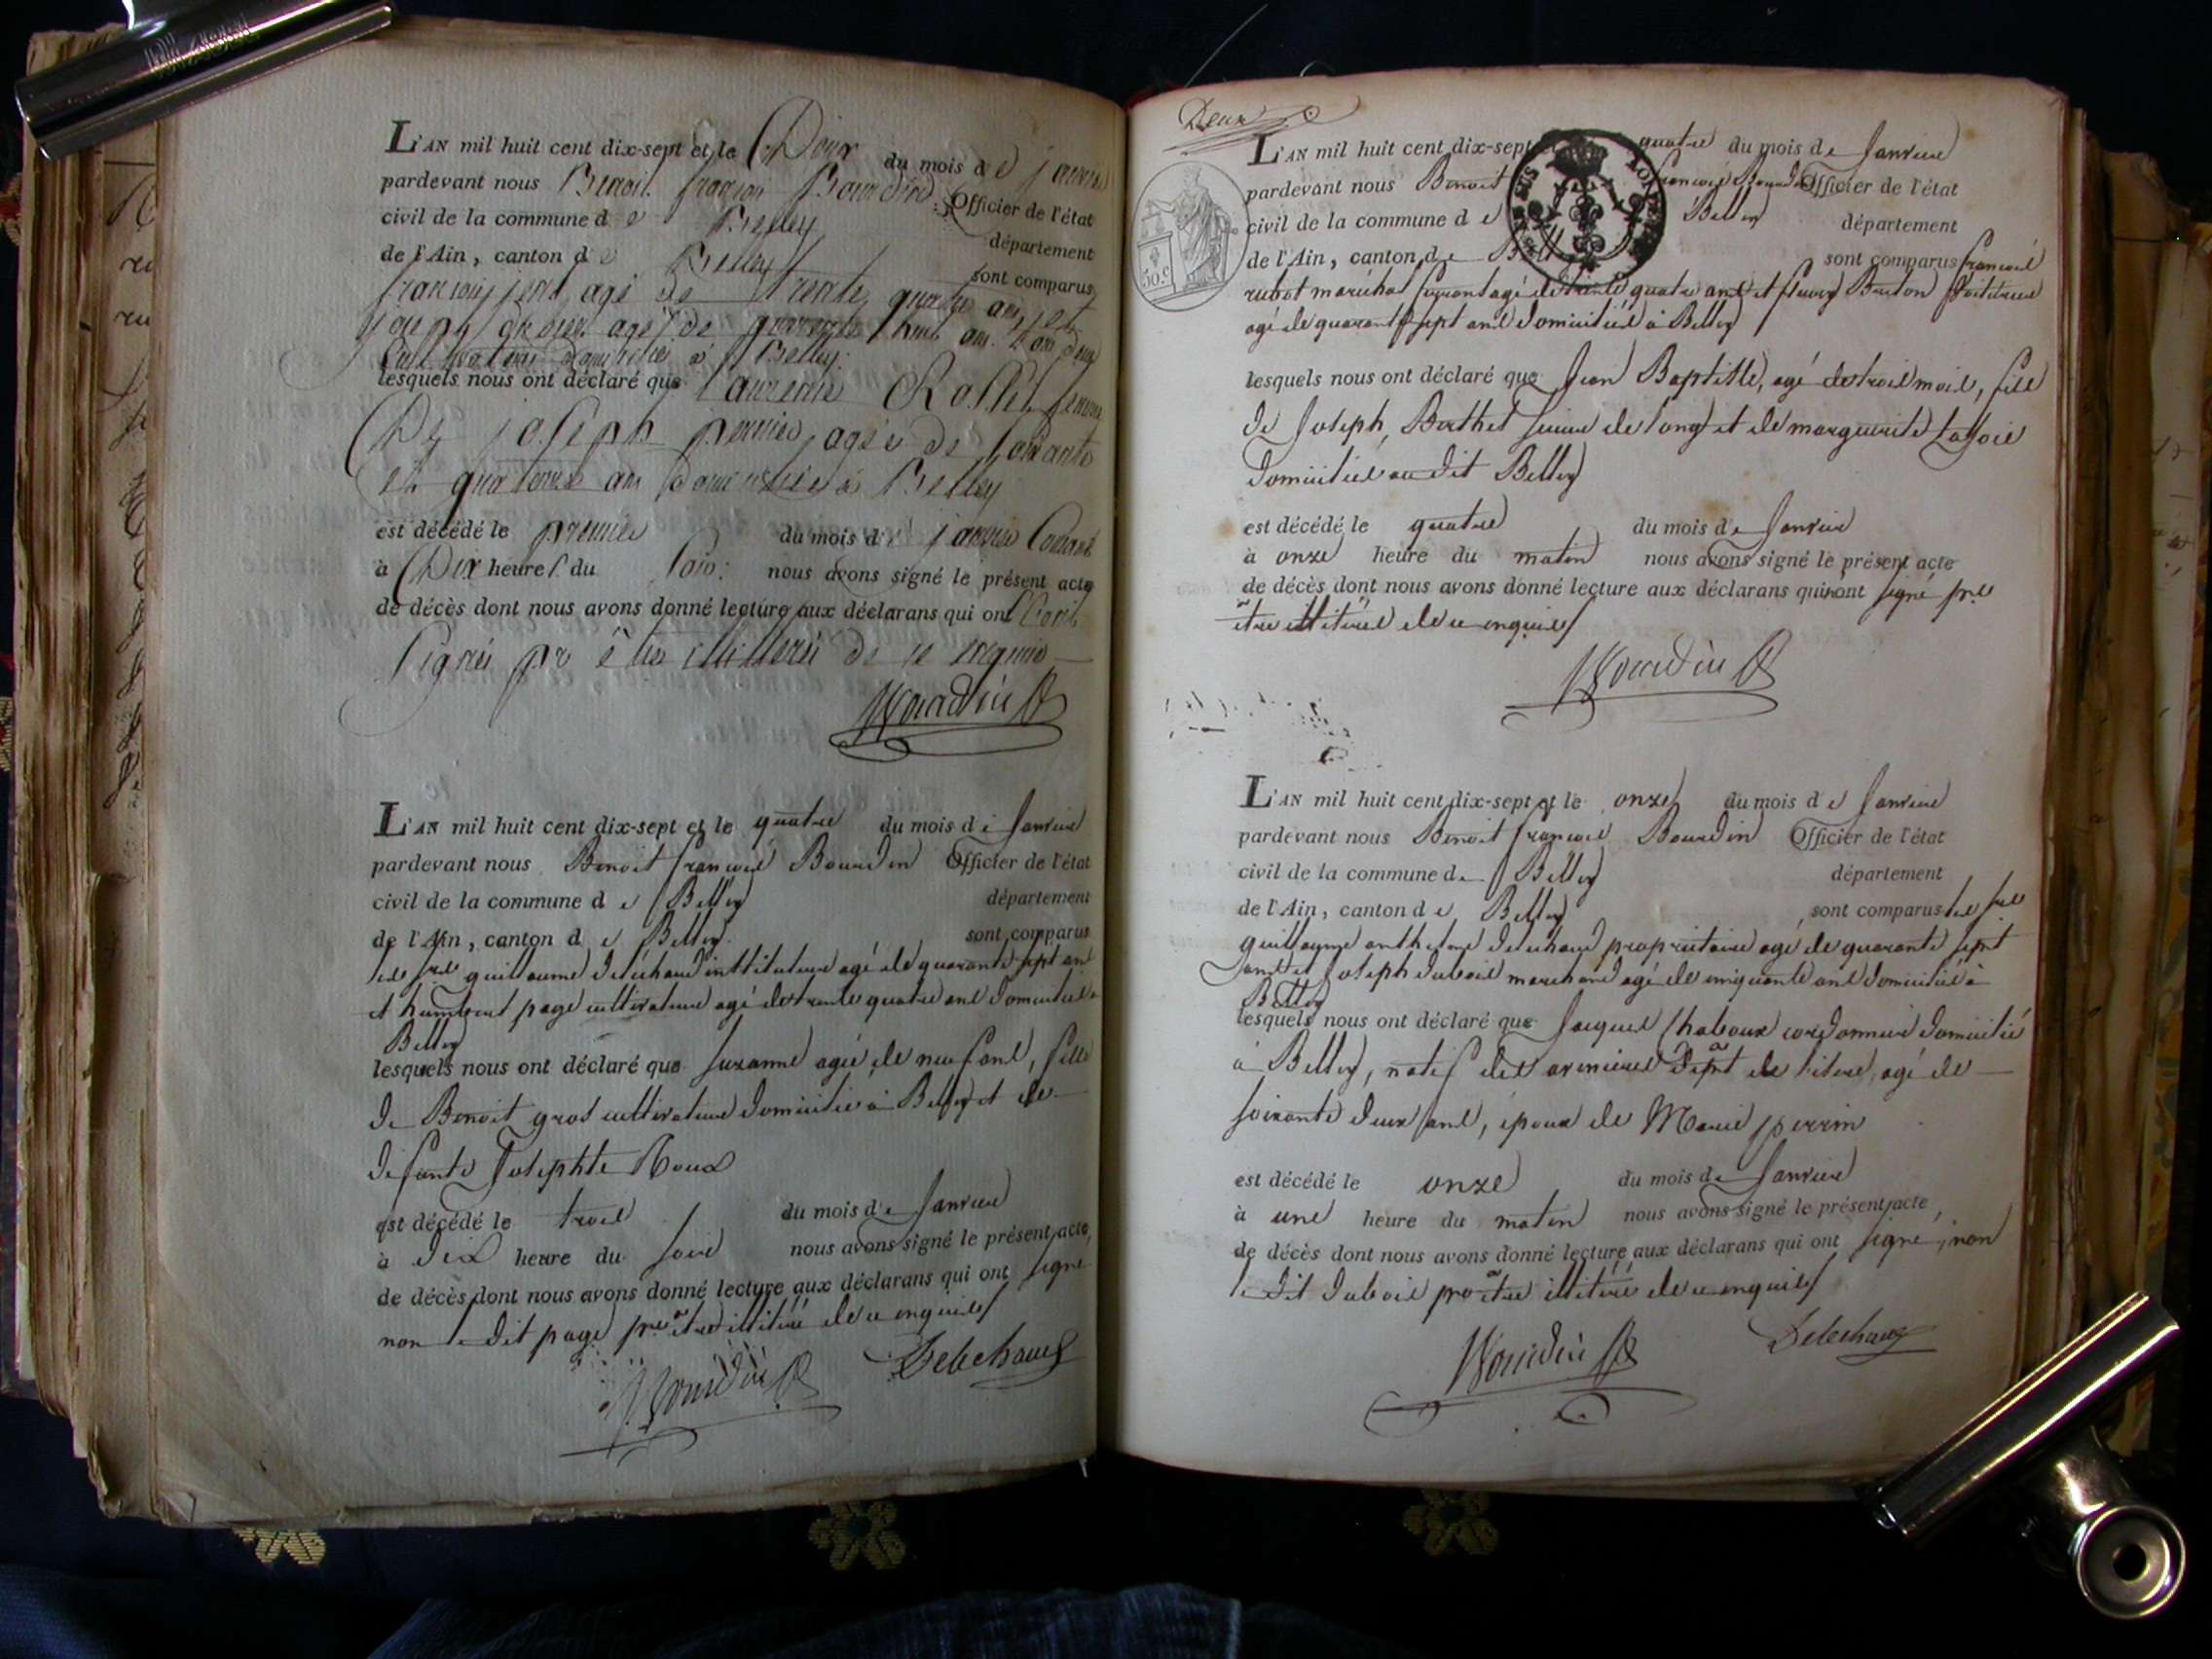 L'AN mil huit cent dix-sept et le Deux du mois de janvier
pardevant nous Benoit françois Bourdin Officier de l'état
civil de la commune de Belley département
de l'Ain, canton de Belley sont comparus
françois jent agé de trente quatre ans, et
joseph agé de quarante huit ans tous deux
Cultivateurs domiciliés à Belley
lesquels nous ont déclaré que Laurence Rosset femme
De joseph perrier, agée de soixante
et quatorze ans domiciliée à Belley
est décédé le premier du mois de janvier Courant
à Dix heures du soir nous avons signé le présent acte
de décès dont nous avons donné lecture aux déclarans qui ont
signés pr être illitérés de ce enquis
Bourdin
L'AN mil huit cent dix-sept et le quatre du mois de Janvier
pardevant nous Benoit françois Bourdin Officier de l'état
civil de la commune de Belley département
de l'Ain, canton de Belley sont comparus
les srs guillaume Deléchaud instituteur agé de quarante sept ans
et humbert page cultivateur agé de trente quatre ans domiciliés à
Belley
lesquels nous ont déclaré que suzanne agée de neuf ans, fille
de Benoit gros cultivateur domicilié à Belley et de
defunte Josephte Roux
est décédé le trois du mois de Janvier
à dix heure du soir nous avons signé le présent acte,
de décès dont nous avons donné lecture aux déclarans qui ont signé
non le dit page pr être illitéré de ce enquis
Bourdin Delechaud
Deux
L'AN mil huit cent dix-sept quatre du mois de Janvier
pardevant nous Benoit françois Officier de l'état
civil de la commune de Belley département
de l'Ain, canton de sont comparus françois
rubat maréchal ferrant agé de trente quatre ans et fleury Breton Voiturier
agé de quarante sept ans domiciliés à Belley
lesquels nous ont déclaré que Jean Baptiste, agé de trois mois, fils
de Joseph Berthet de long et de marguerite Lajoie
domiciliés au dit Belley
est décédé le quatre du mois de Janvier
à onze heure du matin nous avons signé le présent acte
de décès dont nous avons donné lecture aux déclarans qui n'ont signé pr
être illitérés de ce enquis
Bourdin
L'AN mil huit cent dix-sept et le onze du mois de Janvier
pardevant nous Benoit françois Bourdin Officier de l'état
civil de la commune de Belley département
de l'Ain, canton de Belley sont comparus les srs
guillaume anthelme delechaud propriétaire agé de quarante sept
ans et Joseph dubois marchand agé de cinquante ans domiciliés à
Belley
lesquels nous ont déclaré que Jacques Chaboux cordonnier domicilié
à Belley, natif des avenieres dépt de l'isere, agé de
soixante deux ans, époux de Marie perrin
est décédé le onze du mois de Janvier
à une heure du matin nous avons signé le présent acte,
de décès dont nous avons donné lecture aux déclarans qui ont signé, non
le dit dubois pr être illitéré de ce enquis
Bourdin Delechaud